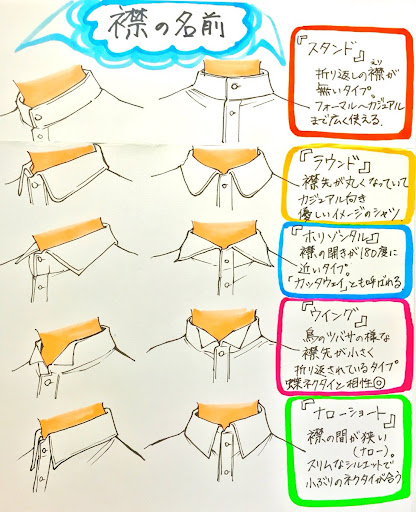 襟の名前
『スタンド』
折り返しの襟が
えり
無いタイプ。
フォーマル〜カジュアル
まで広く使える.
『ラウンド』
襟先が丸くなっていて
カジュアル向き
優しいイメージのシャツ
『ホリゾンタル』
襟の開きが180度に
近いタイプ。
「カッタウェイ」とも呼ばれる
『ウイング』
鳥のツバサの様な
襟先が小さく
折り返されているタイプ
蝶ネクタイと相性◎
『ナローショート』
襟の間が狭い
(ナロー)。
スリムなシルエットで
小ぶりのネクタイが合う